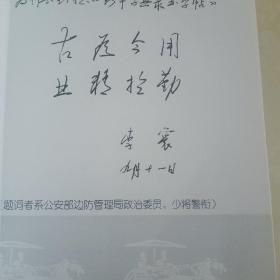 古为今用
业精于勤
李震
九月十一日
(题词者系公安部边防管理局政治委员、少将警衔)